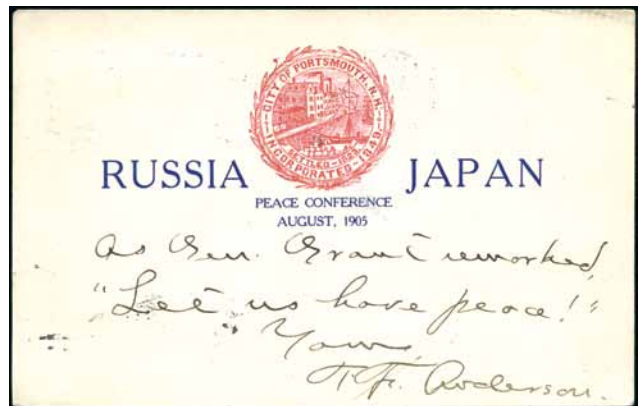 CITY OF PORTSMOUTH, N.H.
INCORPORATED 1849
RUSSIA JAPAN
PEACE CONFERENCE
AUGUST, 1905
As Gen. Grant remarked,
"Let us have peace!"
Yours,
T. F. Anderson.